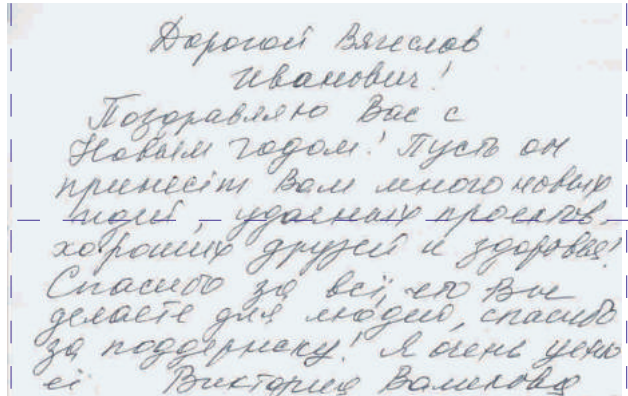 Дорогой Вячеслав
Иванович!
Поздравляю Вас с
Новым годом! Пусть он
принесёт Вам много новых
идей, удачных проектов,
хороших друзей и здоровья!
Спасибо за всё, что Вы
делаете для людей, спасибо
за поддержку! Я очень ценю
её Виктория